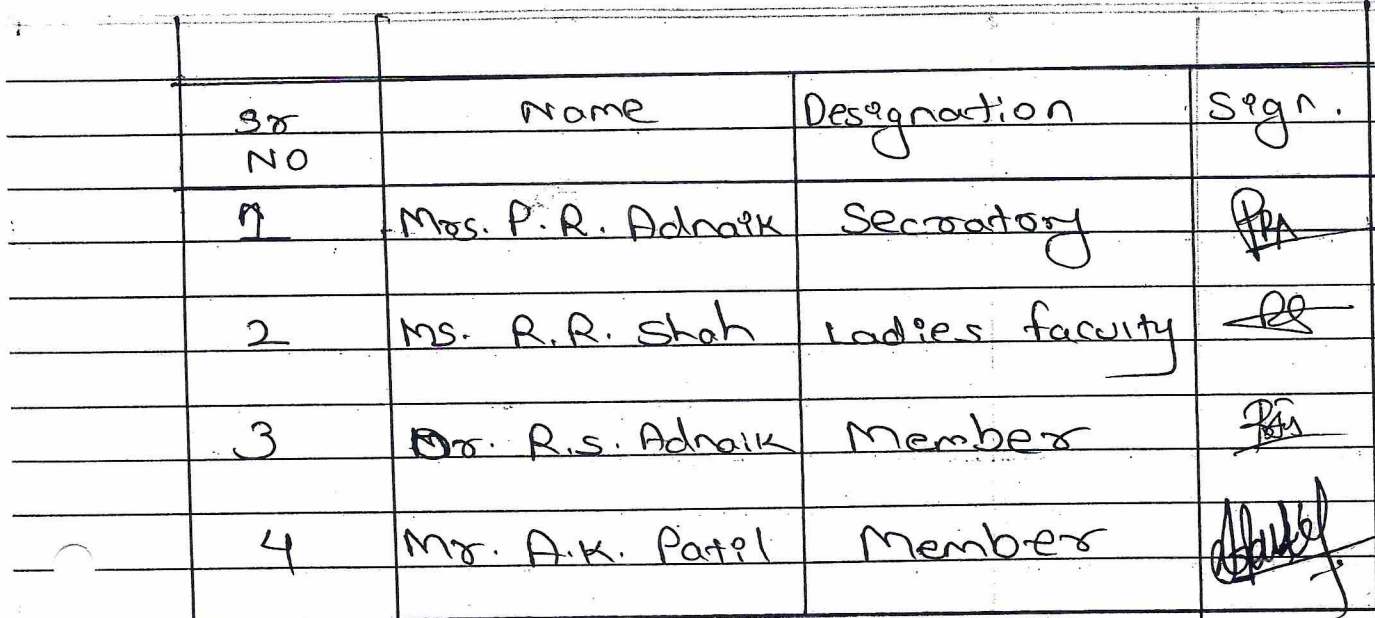 Sr Name Designation Sign.
NO
1 Mrs. P. R. Adnaik Secroatory
2 Ms. R.R. Shah Ladies faculty
3 Dr. R.S. Adnaik Member
4 Mr. A.K. Patil Member